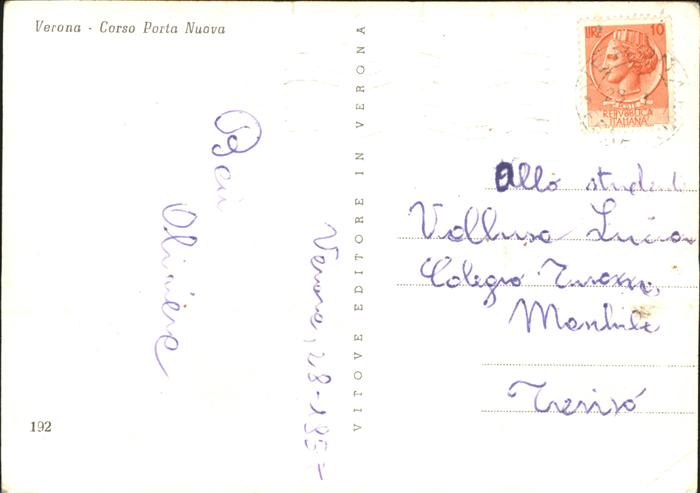 Verona - Corso Porta Nuova
LIRE 10
POSTE
REPVBBLICA
ITALIANA
Baci
Oliviero
Verona, 28-1957
VITOVE EDITORE IN VERONA
Allo studente
Colegio
Treviso
192